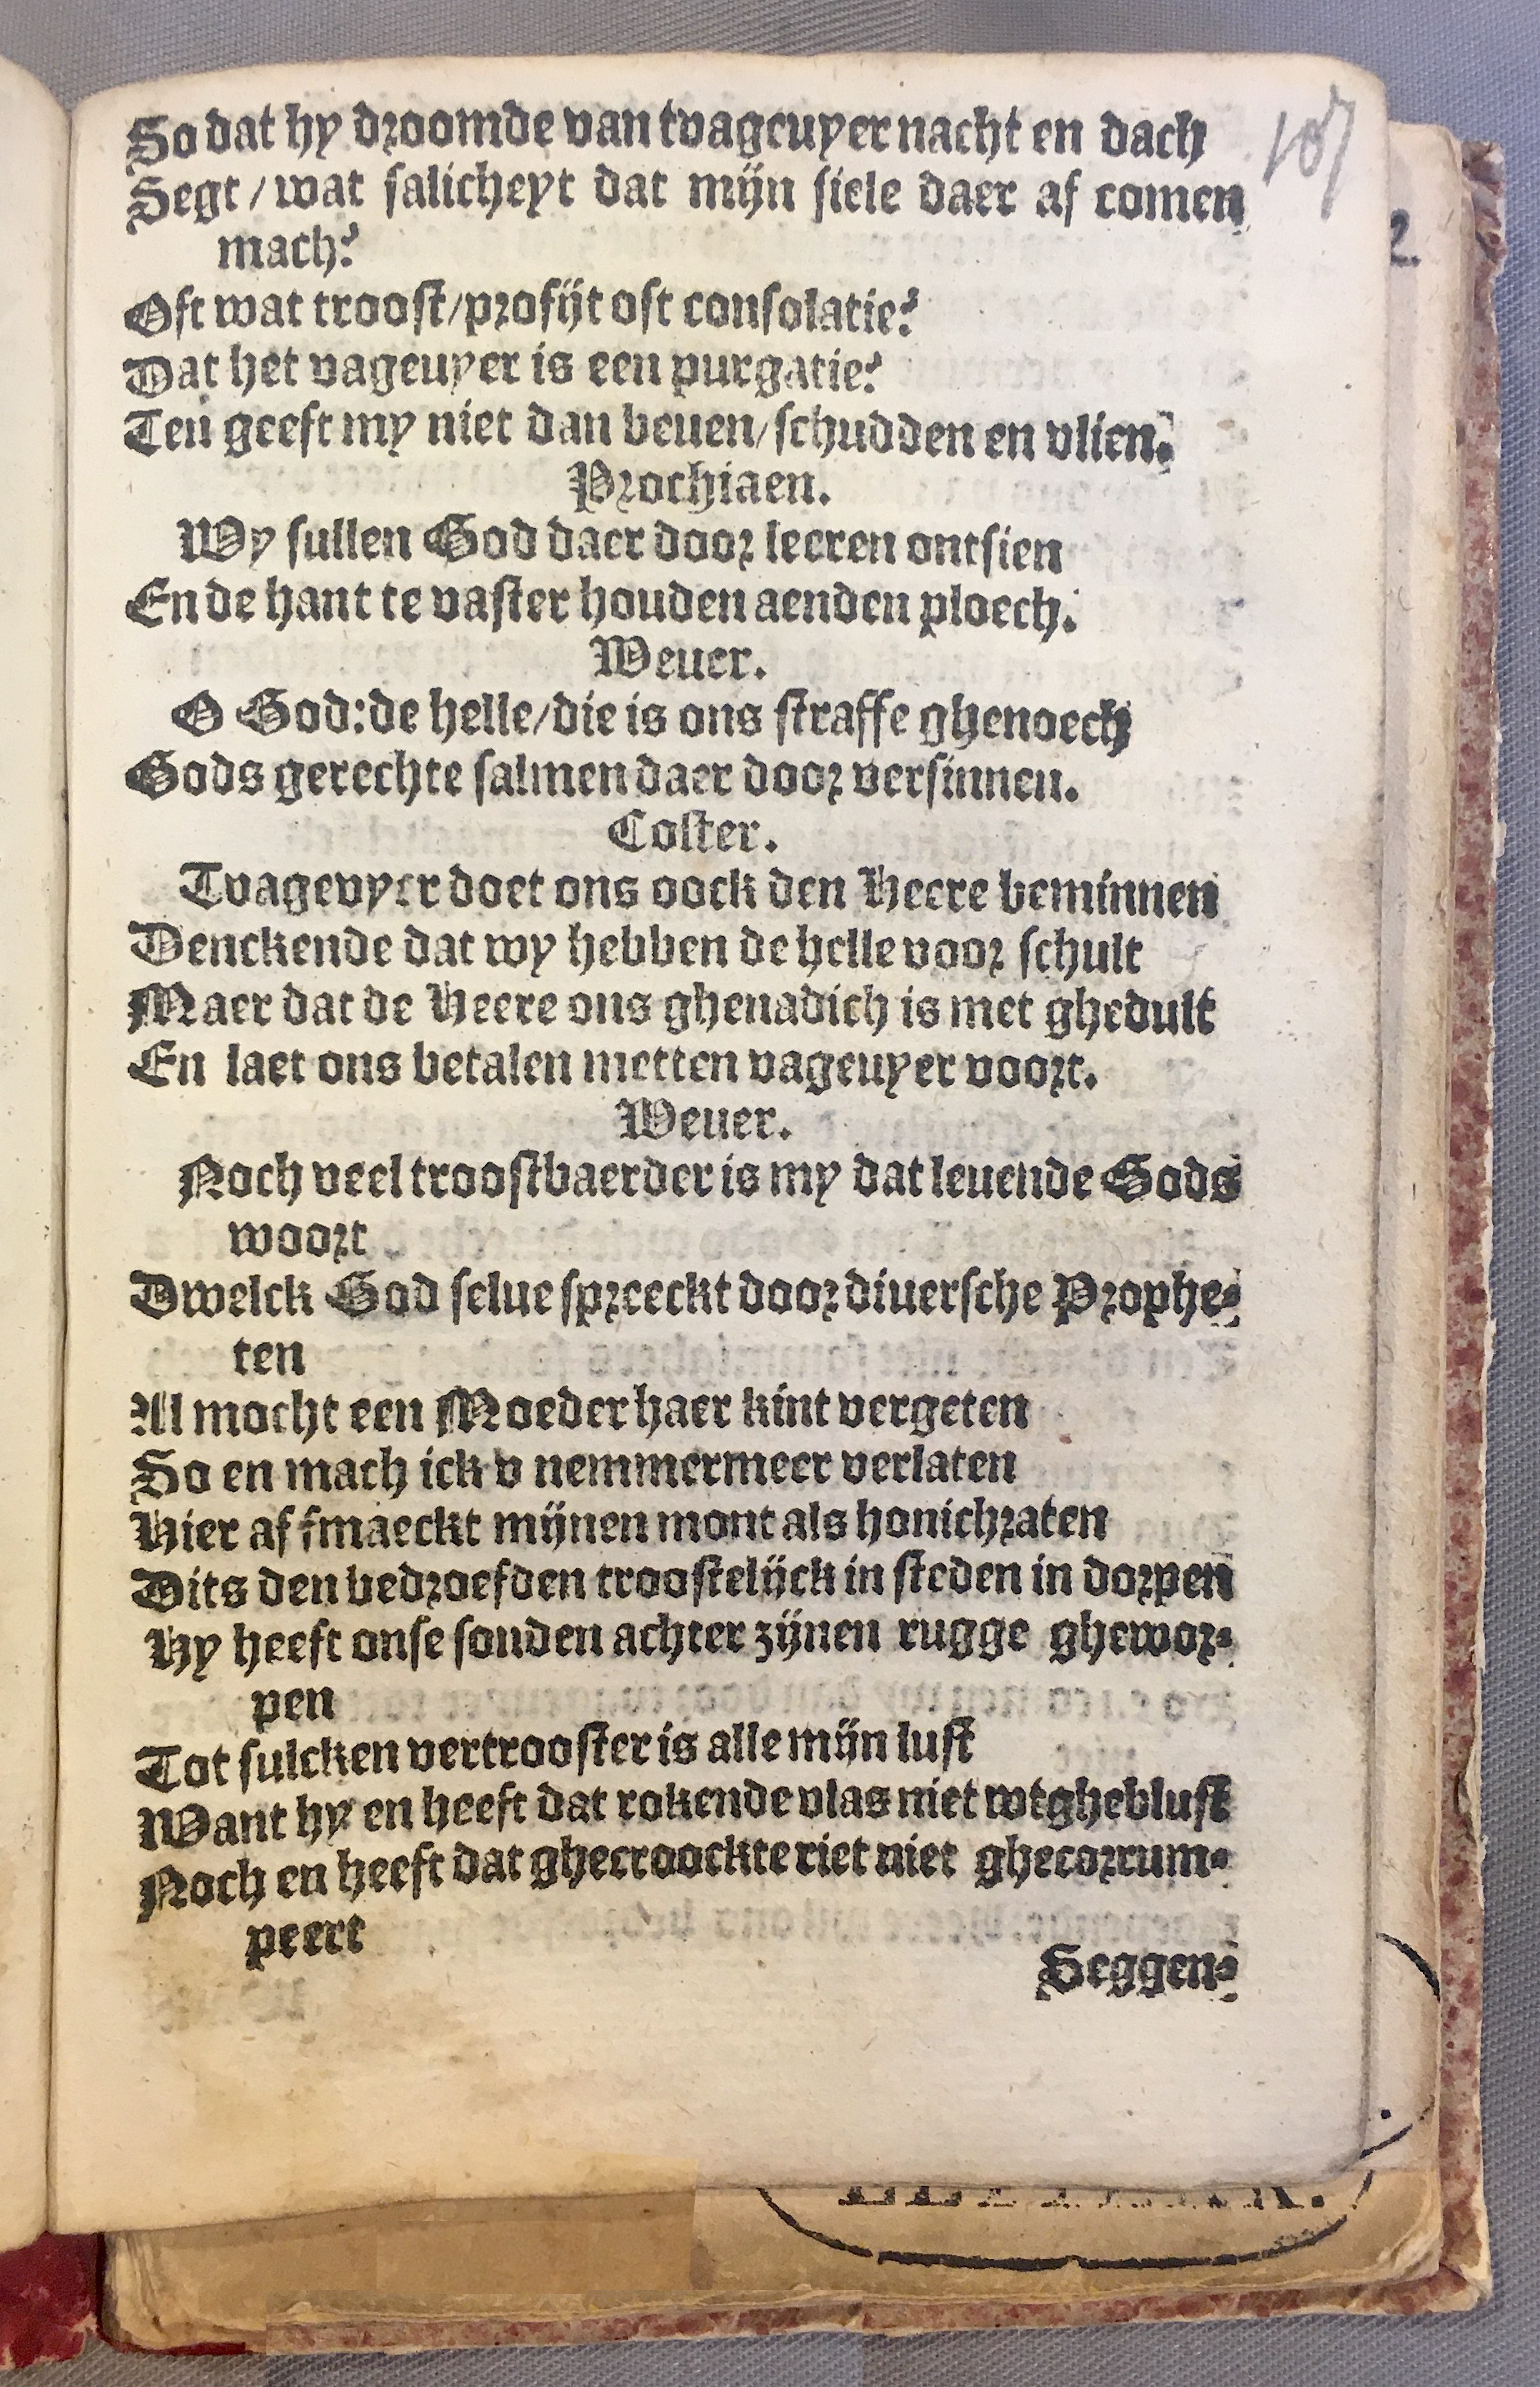 So dat hy droomde van tvageuyer nacht en dach
107
Segt / wat salicheyt dat mijn siele daer af comen
mach?
2.
Oft wat troost / profijt oft consolatie?
Dat het vageuyer is een purgatie?
Ten geeft my niet dan beuen / schudden en vlien.
Prochiaen.
Wy sullen God daer door leeren ontsien
En de hant te vaster houden aenden ploech.
Weuer.
O God: de helle / die is ons straffe ghenoech
Gods gerechte salmen daer door versinnen.
Coster.
Tvagevyer doet ons oock den Heere beminnen
Denckende dat wy hebben de helle voor schult
Maer dat de Heere ons ghenadich is met ghedult
En laet ons betalen metten vageuyer voort.
Weuer.
Noch veel troostbaerder is my dat leuende Gods
woort
Dwelck God selue spreeckt door diuersche Prophe-
ten
Al mocht een Moeder haer kint vergeten
So en mach ick v nemmermeer verlaten
Hier af smaeckt mijnen mont als honichraten
Dits den bedroefden troostelijck in steden in dorpen
Hy heeft onse sonden achter zijnen rugge ghewor-
pen
Tot sulcken vertrooster is alle mijn lust
Want hy en heeft dat rokende vlas niet wtgheblust
Noch en heeft dat ghecroockte riet niet ghecorrum-
peert
Seggen-